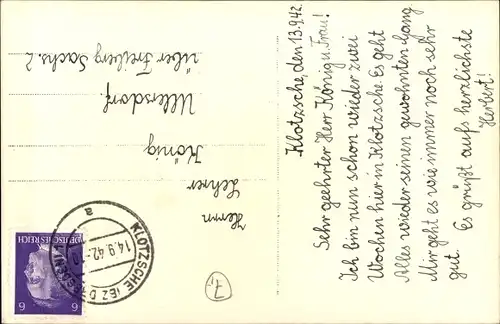 Klotzsche, den 13.9.42.
Sehr geehrter Herr König u. Frau!
Ich bin nun schon wieder zwei
Wochen hier in Klotzsche. Es geht
Alles wieder seinen gewohnten Gang
Mir geht es wie immer noch sehr
gut. Es grüßt aufs herzlichste
Herbert!
Herrn
Lehrer
König
Ullersdorf.
über Freiberg Sachs. 2
DEUTSCHES REICH
6 6
KLOTZSCHE (BZ DRESDEN)
14.9.42
a
7,-